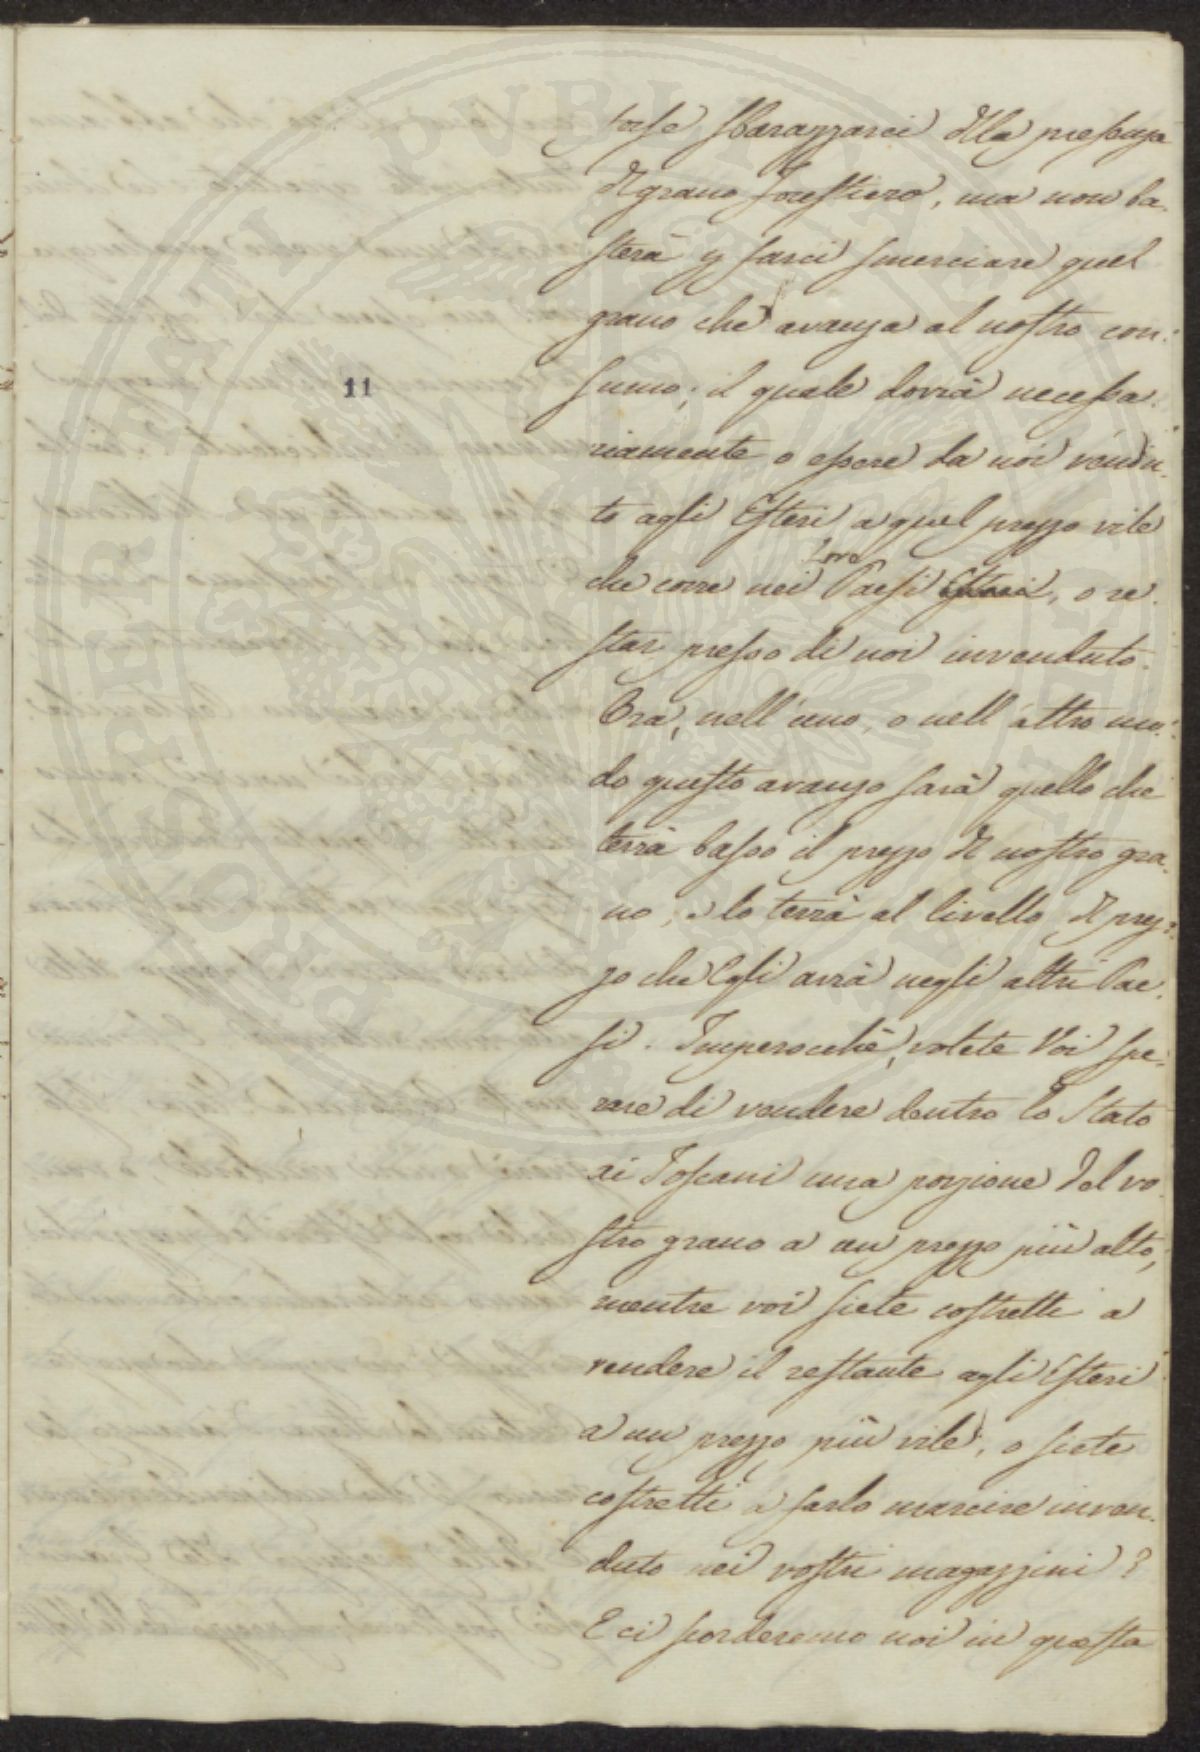 forse sbarazzarci della presenza
del grano forestiero, ma non ba-
sterà per farci smerciare quel
grano che avanza al nostro con-
sumo; il quale dovrà necessa-
riamente o essere da noi vendu-
to agli Esteri a quel prezzo vile
che corre nei loro Paesi Esteri, o re-
star presso di noi invenduto.
Ora, nell'uno, o nell'altro mo-
do questo avanzo sarà quello che
terrà basso il prezzo del nostro gra-
no, e lo terrà al livello del prez-
zo che Egli avrà negli altri Pae-
si. Imperocchè, volete Voi spe-
rare di vendere dentro lo Stato
ai Toscani una porzione del vo-
stro grano a un prezzo più alto,
mentre voi siete costretti a
vendere il restante agli Esteri
a un prezzo più vile, o siete
costretti a farlo marcire inven-
duto nei vostri magazzini?
E ci scorderemo noi in questa
11
PROSPERITATI PVBLICAE